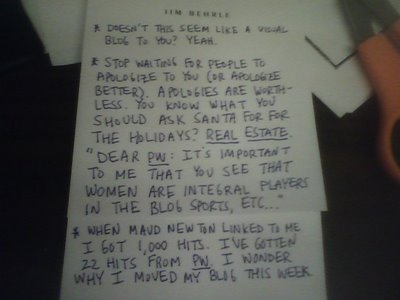 JIM BEHRLE
* DOESN'T THIS SEEM LIKE A VISUAL
BLOG TO YOU? YEAH.
* STOP WAITING FOR PEOPLE TO
APOLOGIZE TO YOU (OR APOLOGIZE
BETTER). APOLOGIES ARE WORTH-
LESS. YOU KNOW WHAT YOU
SHOULD ASK SANTA FOR FOR
THE HOLIDAYS? REAL ESTATE.
"DEAR PW: IT'S IMPORTANT
TO ME THAT YOU SEE THAT
WOMEN ARE INTEGRAL PLAYERS
IN THE BLOG SPORTS, ETC..."
* WHEN MAUD NEWTON LINKED TO ME
I GOT 1,000 HITS. I'VE GOTTEN
22 HITS FROM PW. I WONDER
WHY I MOVED MY BLOG THIS WEEK.